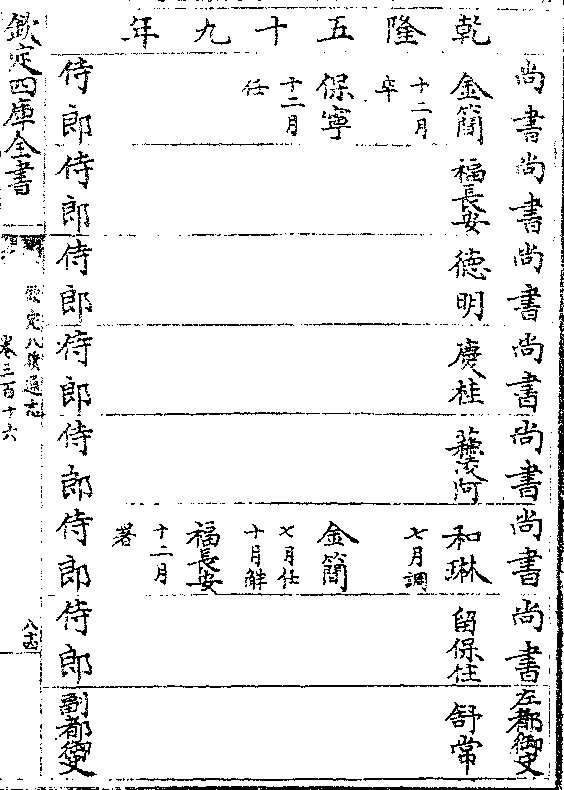 乾隆五十九年
尚書
金簡
十二月
卒
保寧
十二月
任
侍郎
尚書
福長安
侍郎
尚書
德明
侍郎
尚書
慶桂
侍郎
尚書
蘇凌阿
侍郎
尚書
和琳
七月調
金簡
七月任
十月解
福長安
十二月
署
侍郎
尚書
留保住
侍郎
左都御史
舒常
副都御史
欽定四庫全書
欽定八旗通志
卷三百十六